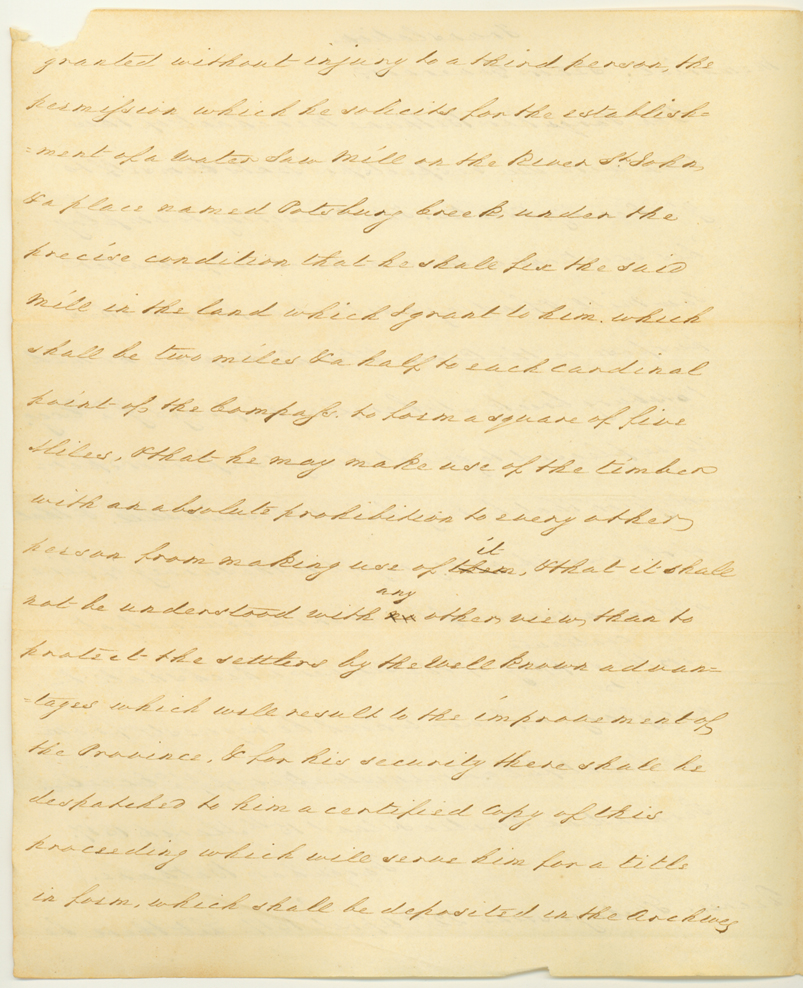 granted without injury to a third person, the
permission which he solicits for the establish=
=ment of a Water Saw Mill on the River St. John,
& a place named Potsburg Creek, under the
precise condition that he shall fix the said
Mill in the land which I grant to him. which
shall be two miles & a half to each cardinal
point of the Compass. to form a square of five
Miles, & that he may make use of the timber
with an absolute prohibition to every other
person from making use of them it, & that it shall
not be understood with any other view, than to
protect the settlers by the well known advan=
=tages which will result to the improvement of
the Province, & for his security there shall be
despatched to him a certified Copy of this
proceeding which will serve him for a title
in form, which shall be deposited in the Archives